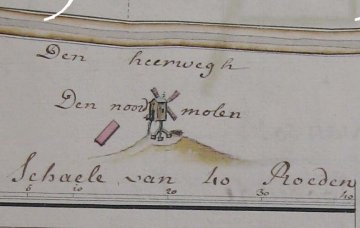 Den heerwegh
Den noord molen
Schaele van 40 Roeden
5 10 20 30 40